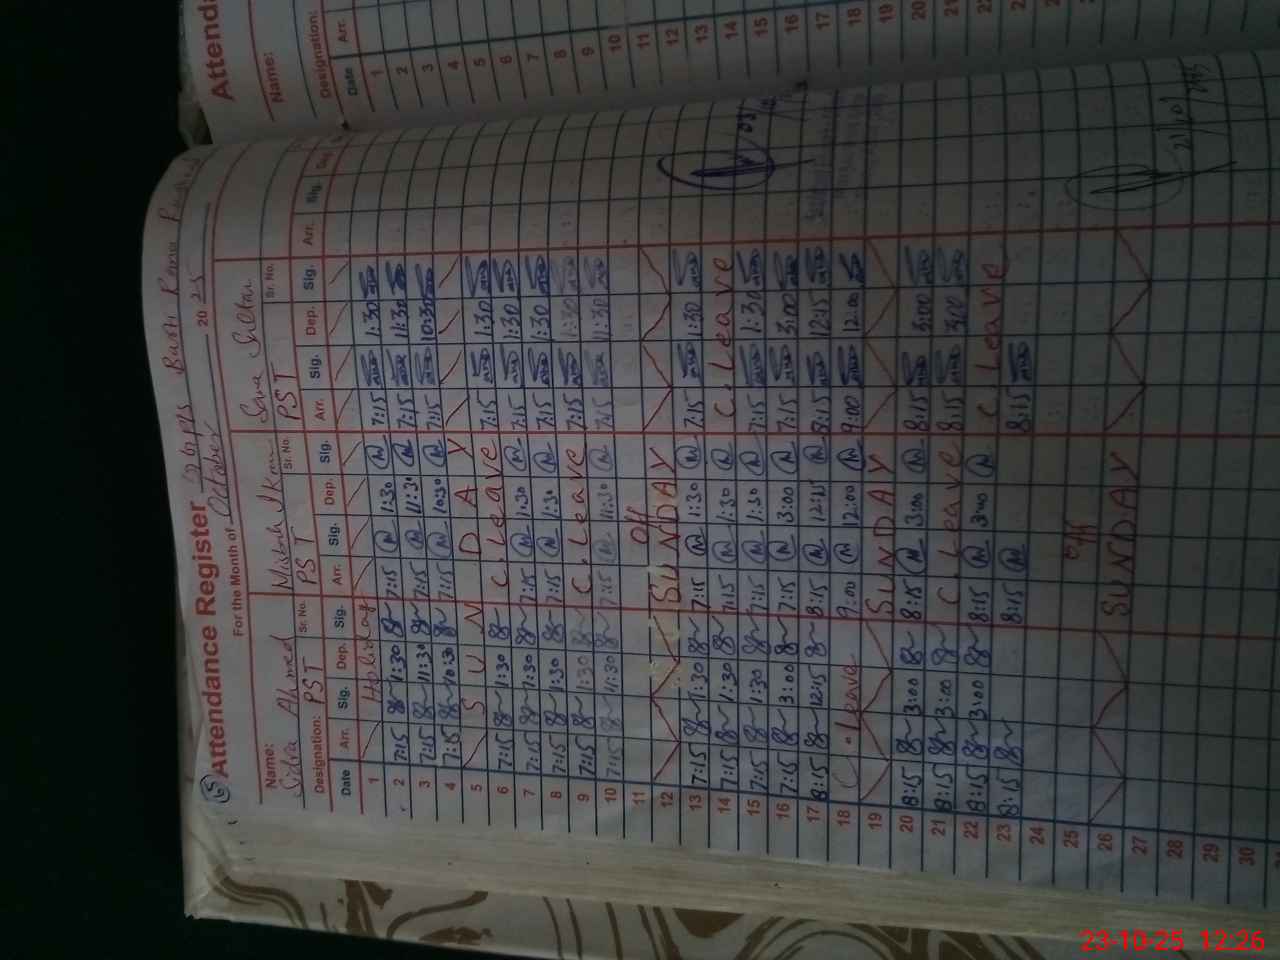 Attendance Register
For the Month of October 2025
Name: Ahmed
Designation: PST Sr. No. PST Sr. No. PST Sr. No.
Date Arr. Sig. Dep. Sig. Arr. Sig. Dep. Sig. Arr. Sig. Dep. Sig. Arr. Sig.
1 Holiday
2 7:15 1:30 7:15 1:30 7:15 1:30
3 7:15 11:30 7:15 11:30 7:15 11:30
4 7:15 10:30 7:15 10:30 7:15 10:30
5 SUNDAY
6 7:15 1:30 C. Leave 7:15 1:30
7 7:15 1:30 7:15 1:30 7:15 1:30
8 7:15 1:30 7:15 1:30 7:15 1:30
9 7:15 1:30 C. Leave 7:15 1:30
10 7:15 11:30 7:15 11:30 7:15 11:30
11 off
12 SUNDAY
13 7:15 1:30 7:15 1:30 7:15 1:30
14 7:15 1:30 7:15 1:30 C. Leave
15 7:15 1:30 7:15 1:30 7:15 1:30
16 7:15 3:00 7:15 3:00 7:15 3:00
17 8:15 12:15 8:15 12:15 8:15 12:15
18 C. Leave 9:00 12:00 9:00 12:00
19 SUNDAY
20 8:15 3:00 8:15 3:00 8:15 3:00
21 8:15 3:00 C. Leave 8:15 3:00
22 8:15 3:00 8:15 3:00 C. Leave
23 8:15 8:15 8:15
24
25 off
26 SUNDAY
27
28
29
30
Attenda
Name:
Designation:
Date Arr.
1
2
3
4
5
6
7
8
9
10
11
12
13
14
15
16
17
18
19
20
21
22
23-10-25 12:26